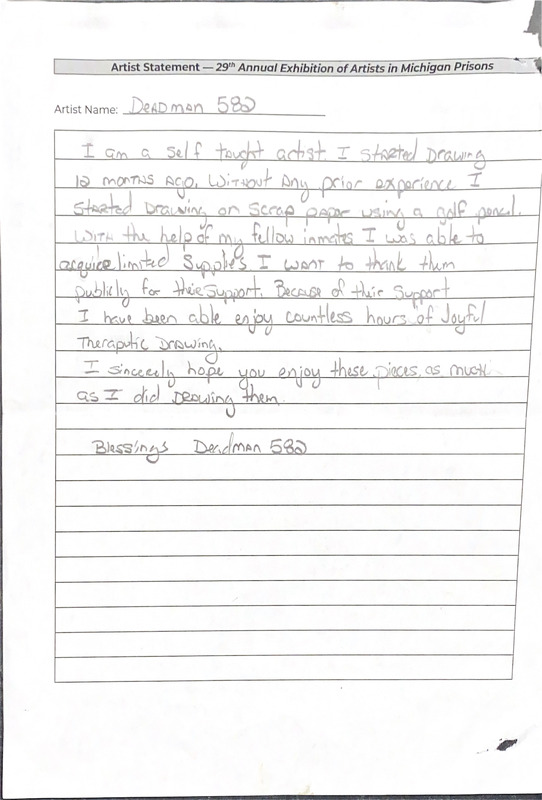 Artist Statement — 29th Annual Exhibition of Artists in Michigan Prisons
Artist Name: Deadman 582
I am a self taught artist. I started Drawing
12 months ago. Without any prior experience I
started Drawing on scrap paper using a golf pencil.
With the help of my fellow inmates I was able to
acquire limited Supplies I want to thank them
publicly for their support. Because of their support
I have been able enjoy countless hours of Joyful
Theraputic Drawing.
I sincerely hope you enjoy these pieces as much
as I did Drawing them.
Blessings Deadman 582